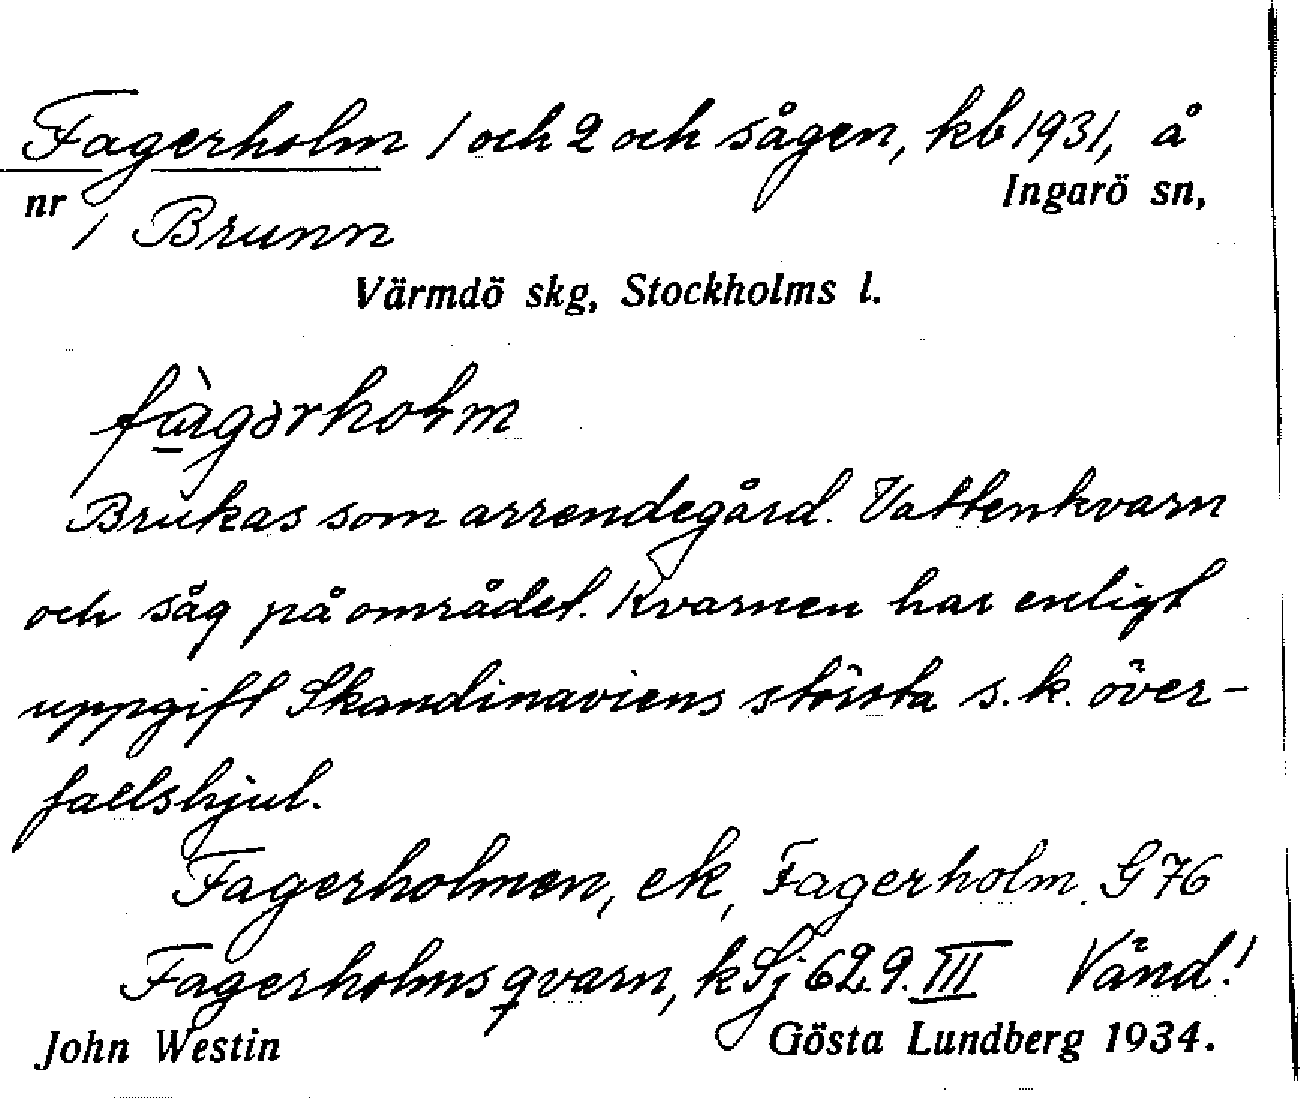 Fagerholm 1 och 2 och sågen, kb 1931, å
nr 1 Brunn Ingarö sn,
Värmdö skg, Stockholms l.
fàgərholm
Brukas som arrendegård. Vattenkvarn
och såg på området. Kvarnen har enligt
uppgift Skandinaviens största s.k. över-
fallshjul.
Fagerholmen, ek, Fagerholm G 76
Fagerholms qvarn, k Sj 62.9.III Vänd!
John Westin Gösta Lundberg 1934.